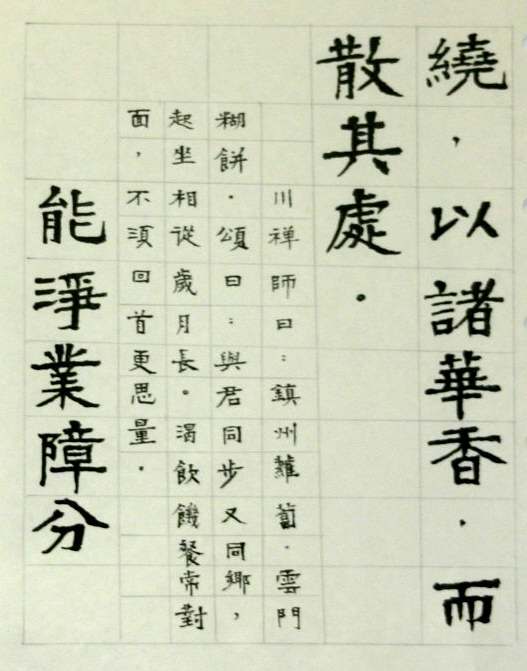 繞，以諸華香．而
散其處．
川禅師曰：鎮州蘿蔔．雲門
糊餅．頌曰：與君同步又同鄉，
起坐相從歲月長。渴飲饑餐常對
面，不須回首更思量．
能淨業障分